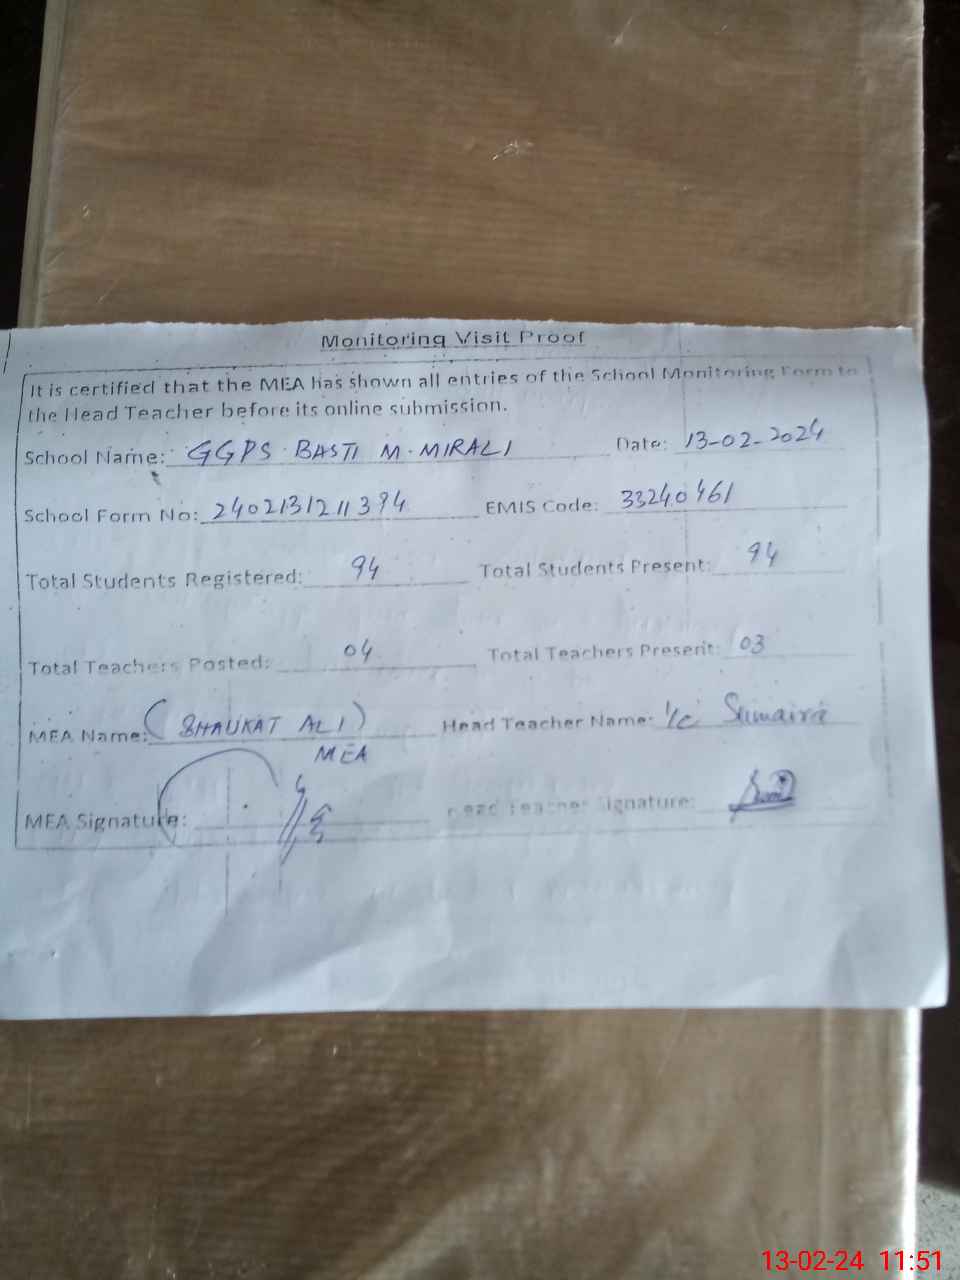 Monitoring Visit Proof
It is certified that the MEA has shown all entries of the School Monitoring Form to
the Head Teacher before its online submission.
School Name: GGPS BASTI M. MIRALI Date: 13-02-2024
School Form No: 2402131211394 EMIS Code: 33240461
Total Students Registered: 94 Total Students Present: 94
Total Teachers Posted: 04 Total Teachers Present: 03
MEA Name: (SHAUKAT ALI) Head Teacher Name: I/C Sumaira
MEA
MEA Signature: Head Teacher Signature:
13-02-24 11:51